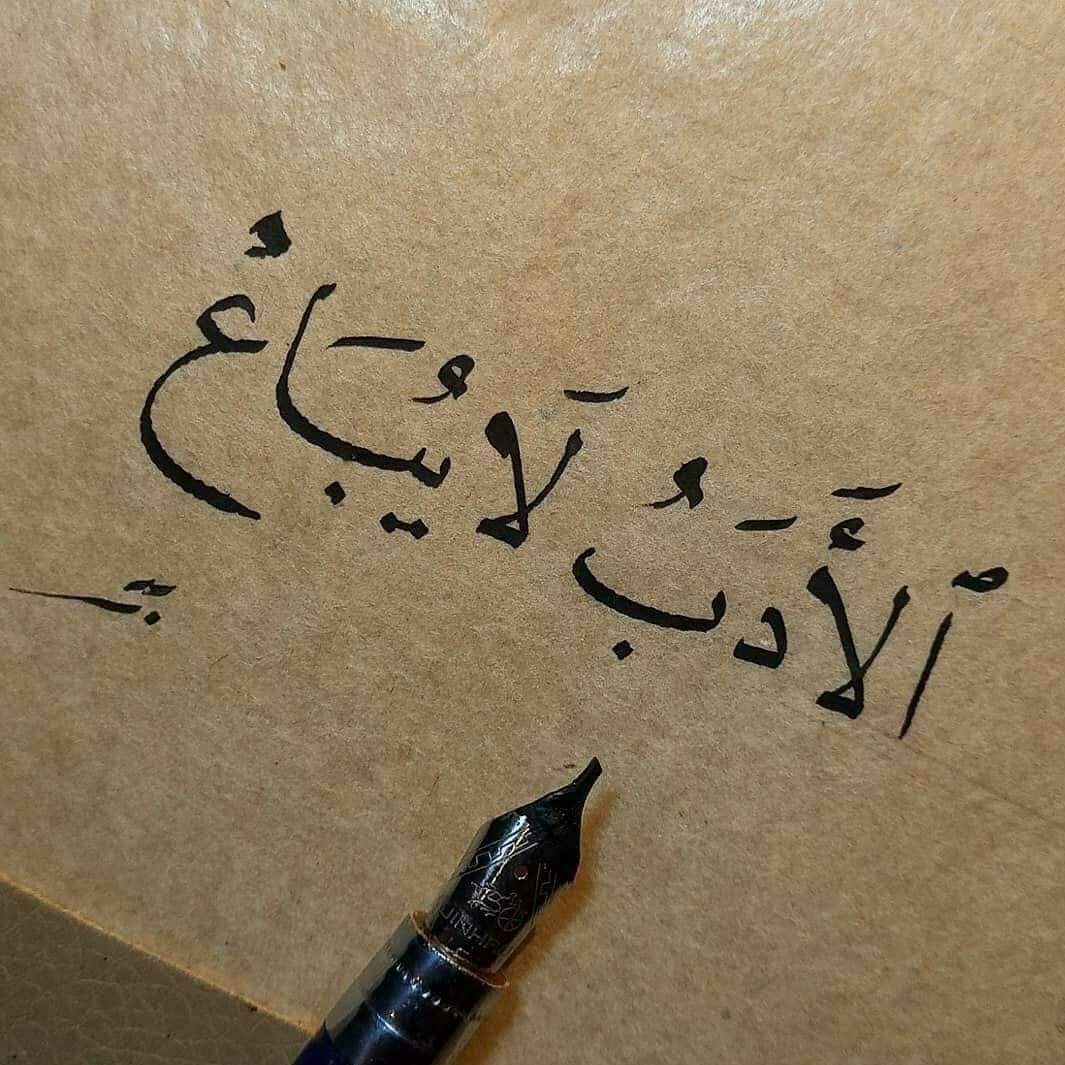 ٱلأَدَبُ لَا يُبَاعُ